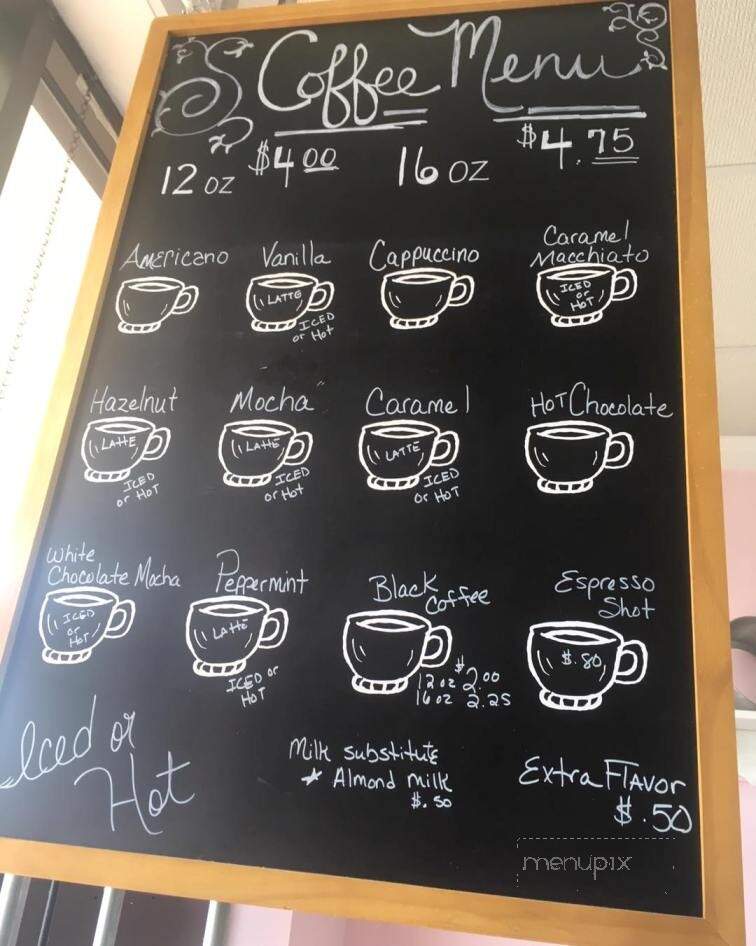 Coffee Menu
12 oz $4.00 16 oz $4.75
Americano
Vanilla
LATTE
ICED
or Hot
Cappuccino
Caramel
Macchiato
ICED
or
HOT
Hazelnut
LATTE
ICED
or HOT
Mocha
LATTE
ICED
or Hot
Caramel
LATTE
ICED
or HOT
HOT Chocolate
White
Chocolate Mocha
ICED
or
HOT
Peppermint
LATTE
ICED or
HOT
Black
Coffee
12 oz $2.00
16 oz 2.25
Espresso
Shot
$.80
Iced or
Hot
Milk substitute
★ Almond milk
$.50
Extra Flavor
$.50
menupix